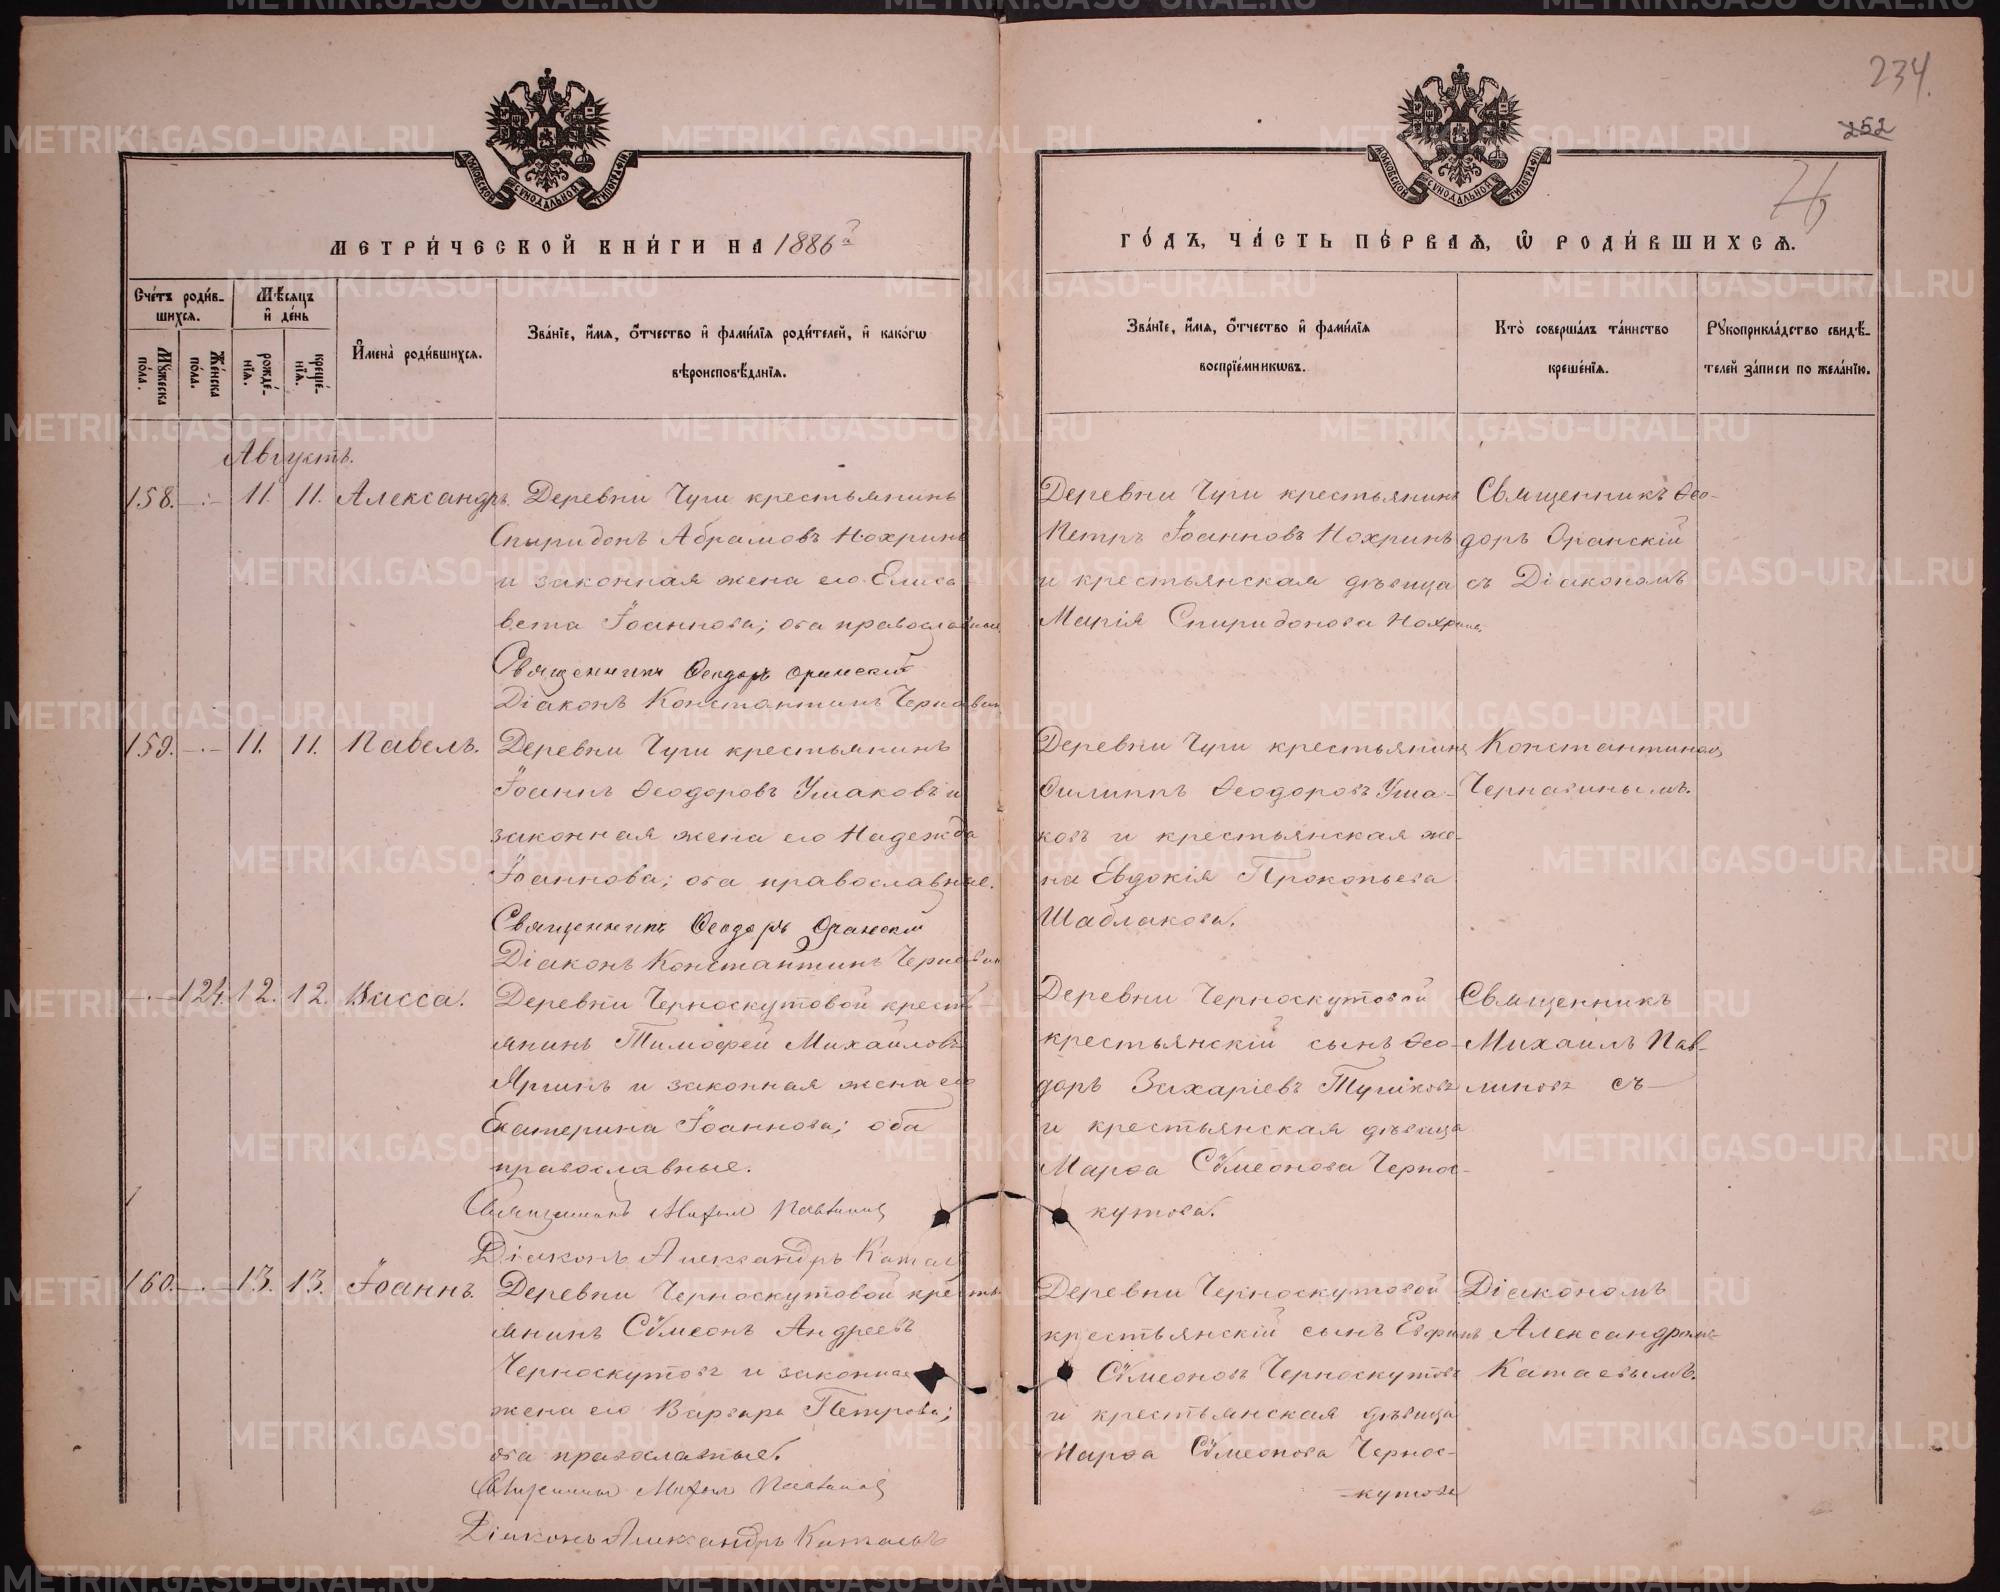 234.
252
МОСКОВСКОЙ СУНОДАЛЬНОЙ ТИПОГРАФІИ
МОСКОВСКОЙ СУНОДАЛЬНОЙ ТИПОГРАФІИ
МЕТРИЧЕСКОЙ КНИГИ НА 1886й
ГОДЪ, ЧАСТЬ ПЕРВАЯ, Ѿ РОДИВШИХСЯ.
Счетъ родив-
шихся.
Мужеска
пола.
Женска
пола.
Мѣсяцъ
и день
рожде-
нія.
креще-
нія.
Имена родившихся.
Званіе, имя, отчество и фамилія родителей, и какогѡ
вѣроисповѣданія.
Званіе, имя, отчество и фамилія
воспріемникѡвъ.
Кто совершалъ таинство
крещенія.
Рукоприкладство свидѣ-
телей записи по желанію.
Августъ.
158. 11. 11. Александръ.
Деревни Чуги крестьянинъ
Спиридонъ Абрамовъ Нохринъ
и законная жена его Елиса
вета Іоаннова; оба православные
Священникъ Ѳеодоръ Оранскій
Діаконъ Константинъ Чернавинъ
Деревни Чуги крестьянинъ
Петръ Іоанновъ Нохринъ
и крестьянская дѣвица
Марія Спиридонова Нохрина
Священникъ Ѳео-
доръ Оранскій
съ Діакономъ
159. 11. 11. Павелъ.
Деревни Чуги крестьянинъ
Іоаннъ Ѳеодоровъ Ушаковъ и
законная жена его Надежда
Іоаннова; оба православные.
Священникъ Ѳеодоръ Оранскій
Діаконъ Константинъ Чернавин
Деревни Чуги крестьянинъ
Филиппъ Ѳеодоровъ Уша-
ковъ и крестьянская же-
на Евдокія Прокопьева
Шаблакова.
Константиномъ
Чернавинымъ.
124. 12. 12. Васса.
Деревни Черноскутовой кресть
янинъ Тимофей Михаиловъ
Яргинъ и законная жена его
Екатерина Іоаннова; оба
православные.
Священникъ Михаил Павлиновъ
Діаконъ Александръ Катаев
Деревни Черноскутовой
крестьянскій сынъ Ѳео-
доръ Захаріевъ
и крестьянская дѣвица
Марѳа Сѵмеонова Чернос-
кутова.
Священникъ
Михаилъ Пав-
линовъ съ
160. 13. 13. Іоаннъ.
Деревни Черноскутовой кресть
янинъ Сѵмеонъ Андреевъ
Черноскутовъ и законная
жена его Варвара Петрова;
оба православные.
Священникъ Михаил Павлиновъ
Діаконъ Александръ Катаевъ
Деревни Черноскутовой
крестьянскій сынъ Евфимъ
Сѵмеоновъ Черноскутовъ
и крестьянская дѣвица
Марѳа Сѵмеонова Чернос-
кутова
Діакономъ
Александромъ
Катаевымъ.
METRIKI.GASO-URAL.RU